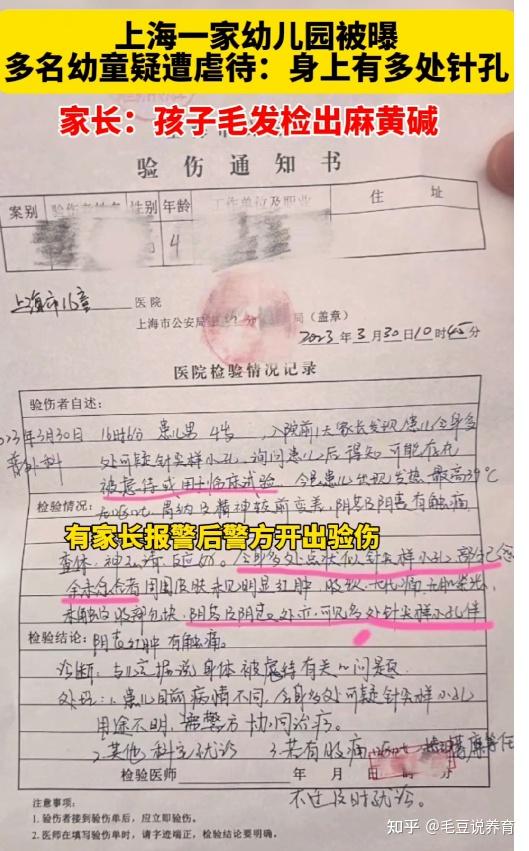 上海一家幼儿园被曝
多名幼童疑遭虐待：身上有多处针孔
家长：孩子毛发检出麻黄碱
验伤通知书
案别 验伤者姓名 性别 年龄 工作单位及职业 住 址
4
上海市儿童 医院
上海市公安局 分 局 (盖章)
2023年3月30日10时45分
医院检验情况记录
验伤者自述：
023年3月30日 16时6分 患儿男 4岁，入院前1天家长发现患儿全身多
普外科 处可疑针尖样小孔，询问患儿后得知可能存在
被虐待或用于临床试验。今患儿出现发热 最高39℃
检验情况： 精神较前变差，阴茎及阴囊有触痛
有家长报警后警方开出验伤
查体：神志清 反应 全身多处点状似针尖样小孔，部
周围皮肤未见明显红肿，
阴茎及阴囊处亦可见多处针尖样小孔伴
检验结论： 阴茎红肿 有触痛。
诊断：与 据说身体被虐待有关的问题
处理：1.患儿目前病情不同，全身多处可疑针尖样小孔
用途不明，需警方协同治疗。
2.其他科室就诊 3.若有腹痛
检验医师 年 月 日
不适及时就诊。
注意事项：
1. 验伤者接到验伤单后，应立即验伤。
2. 医师在填写验伤单时，请字迹端正，检验结论要明确。
知乎 @毛豆说养育